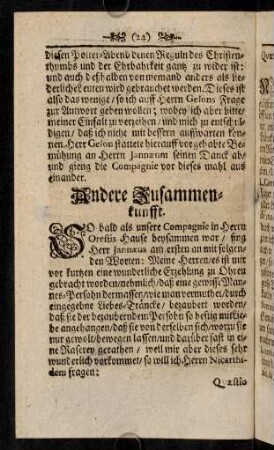 (24)
diesen Polter-Abend denen Reguln des Christen-
thumbs und der Ehrbahrkeit gantz zu wider ist:
und auch deßhalben von niemand anders als lie-
derlichen Leuten wird gebrauchet werden. Dieses ist
also das wenige / so ich auff Herr Gelons Frage
zur Antwort geben wollen; wobey ich aber bitte/
meiner Einfalt zu verzeihen / und mich zu entschul-
digen / daß ich nicht mit bessern auffwarten kön-
nen. Herr Gelon stattete hierauff vor gehabte Be-
mühung an Herrn Jannæum seinen Danck ab/
und gieng die Compagnie vor dieses mahl aus
einander.
Andere Zusammen-
kunfft.
SO bald als unsere Compagnie in Herrn
Orestis Hause beysammen war / fing
Herr Jannæus am ersten an mit folgen-
den Worten: Meine Herren / es ist mir
vor kurtzen eine wunderliche Erzehlung zu Ohren
gebracht worden / nehmlich / daß eine gewisse Man-
nes-Persohn dermassen / wie man vermuthet / durch
eingegebne Liebes-Träncke / bezaubert worden /
daß sie der bezaubernden Persohn so hefftig mit Lie-
be angehangen / daß sie von derselben sich / wozu sie
nur gewolt / bewegen lassen / und darüber fast in ei-
ne Raserey gerathen / weil mir aber dieses sehr
wunderlich vorkommet / so will ich Herrn Nicarchi-
dem fragen:
Quæstio